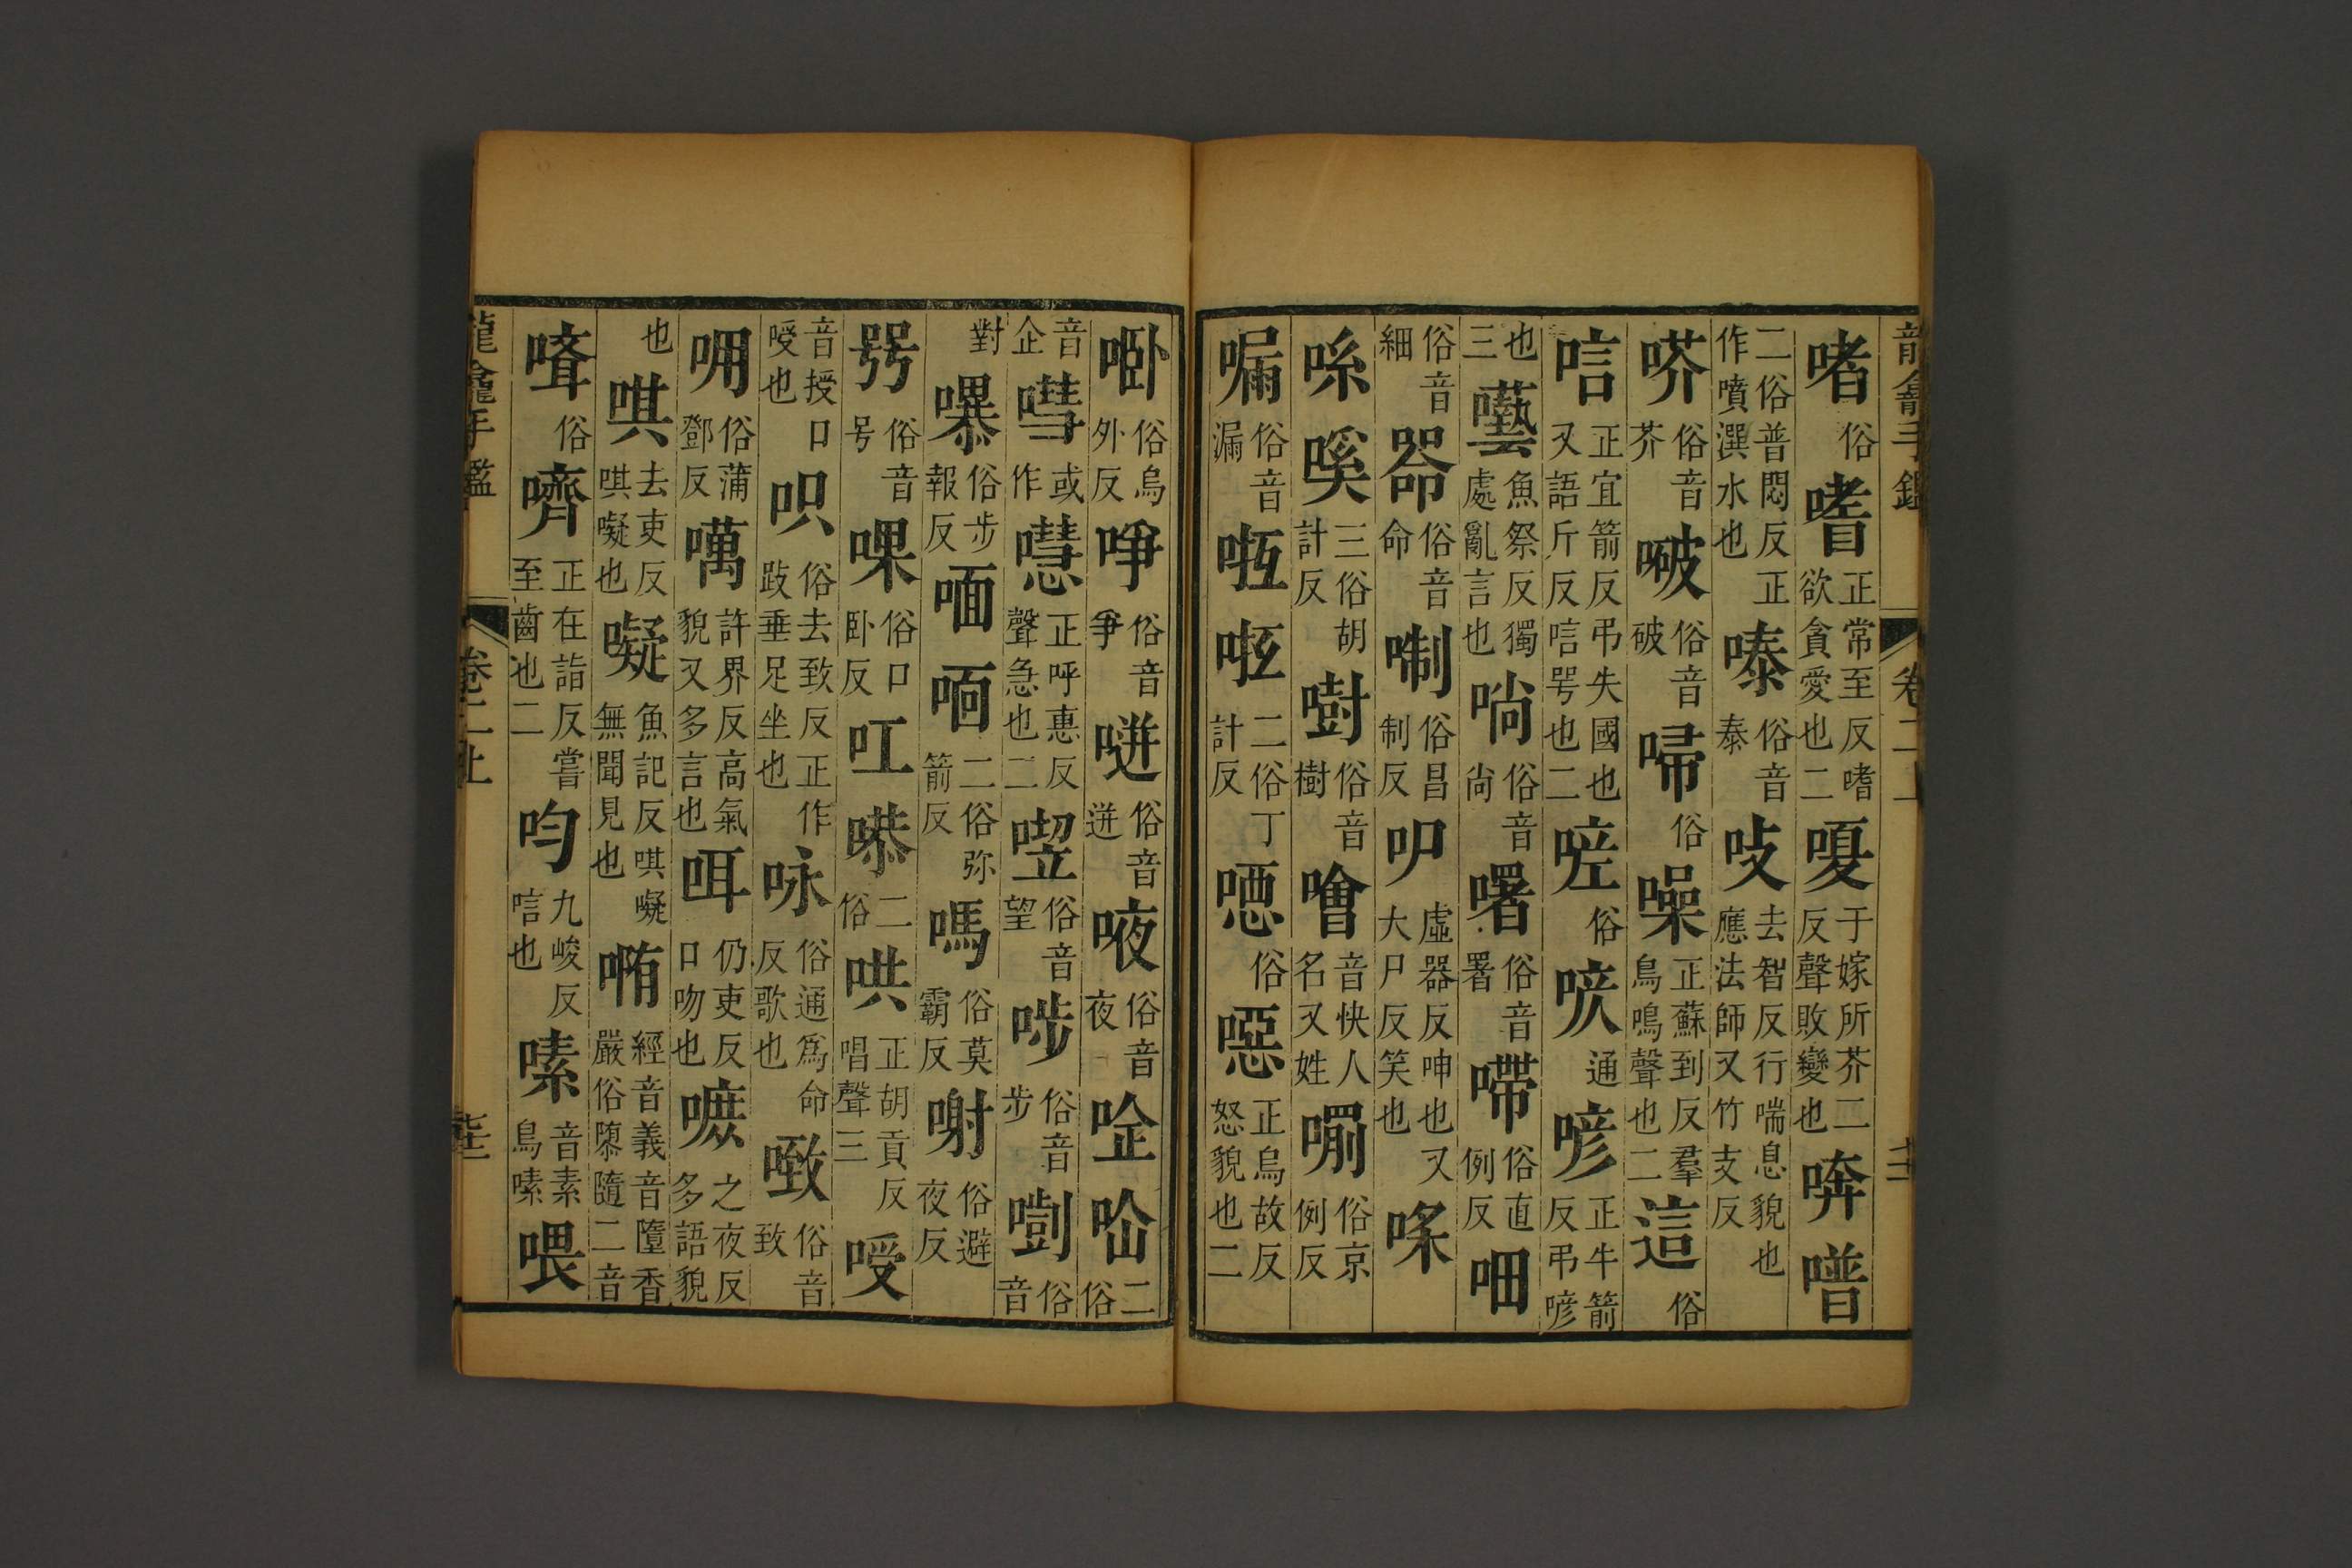 啫俗嗜正常至反嗜欲貪愛也二嗄于嫁所芥二反聲敗變也喯
二俗普悶反正作噴潠水也俗音泰吱去智反行喘息貌也應法師又竹支反
俗音芥俗音破俗噪正蘇到反羣鳥鳴聲也二這俗
唁正宜箭反弔失國也又語斤反唁咢也二俗通喭正牛箭反弔喭
也三囈魚祭反獨處亂言也俗音尚俗音署俗直例反
俗音細俗音命俗昌制反虛器反呻也又大尸反笑也
三俗胡計反俗音樹噲音快人名又姓俗京例反
俗音漏二俗丁計反俗噁正烏故反怒貌也二
龍龕手鑑 卷二上
俗烏外反俗音爭俗音迸俗音夜二俗
音企嘒或作嚖正呼惠反聲急也二俗音望俗音步俗音
對俗步報反二俗弥箭反嗎俗莫霸反俗避夜反
俗音号俗口卧反叿二俗哄正胡貢反唱聲三
音授口㖟也呮俗去致反正作跂垂足坐也咏俗通爲命反歌也俗音致
俗蒲鄧反噧許界反高氣貌又多言也咡仍吏反口吻也嗻之夜反多語貌
也唭去吏反唭㘈也㘈魚記反唭㘈無聞見也經音義音墮香嚴俗隳隨二音
俗嚌正在詣反嘗至齒也二呁九峻反唁也嗉音素鳥嗉喂
龍龕手鑑 卷二上